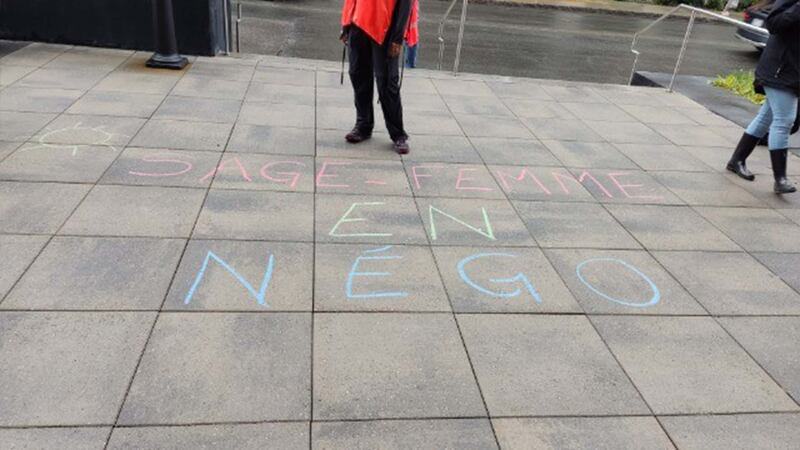 SAGE-FEMME
EN
NÉGO